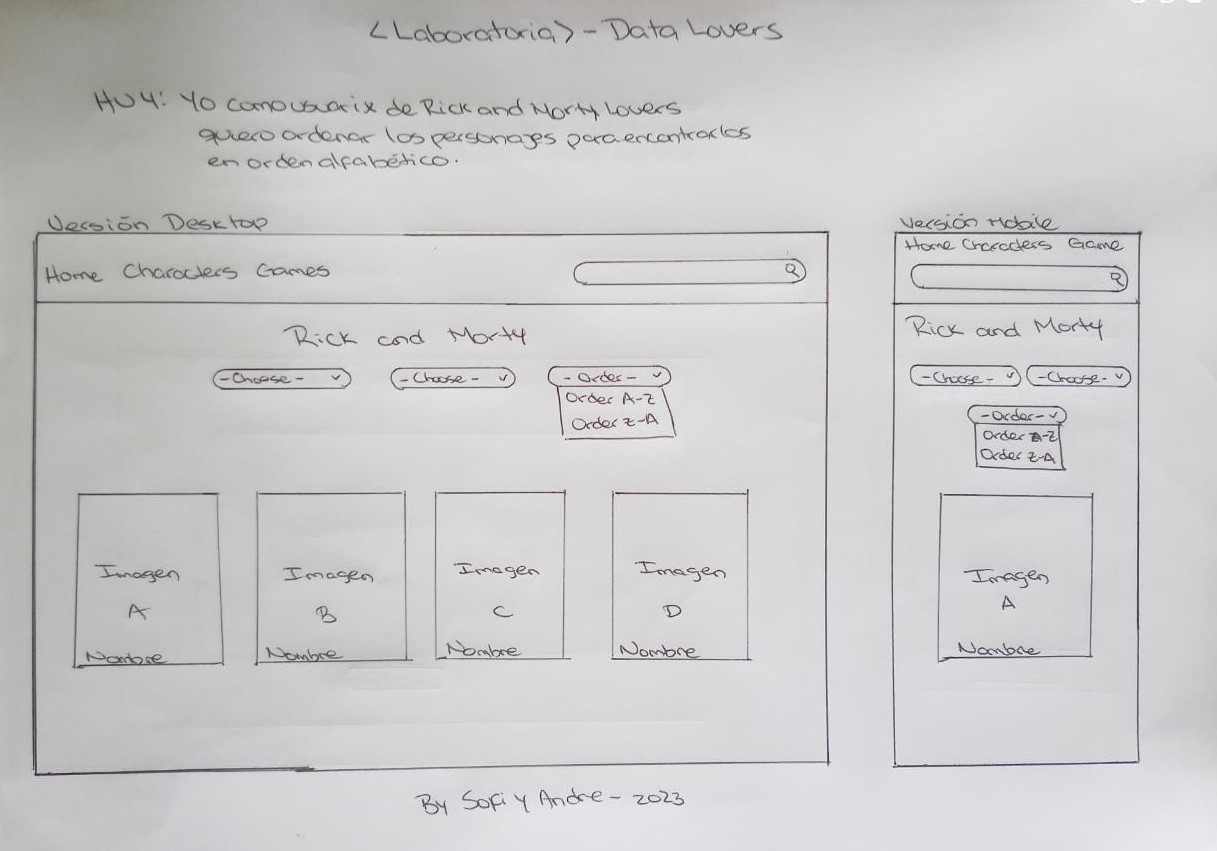 <Laboratoria> - Data Lovers
HU4: Yo como usuarix de Rick and Morty Lovers
quiero ordenar los personajes para encontrarlos
en orden alfabético.
Versión Desktop
Home Characters Games
Rick and Morty
- Choose -
- Choose -
- Order -
Order A-Z
Order Z-A
Imagen
A
Nombre
Imagen
B
Nombre
Imagen
C
Nombre
Imagen
D
Nombre
Versión Mobile
Home Characters Game
Rick and Morty
- Choose -
- Choose -
- Order -
Order A-Z
Order Z-A
Imagen
A
Nombre
By Sofi y Andre - 2023